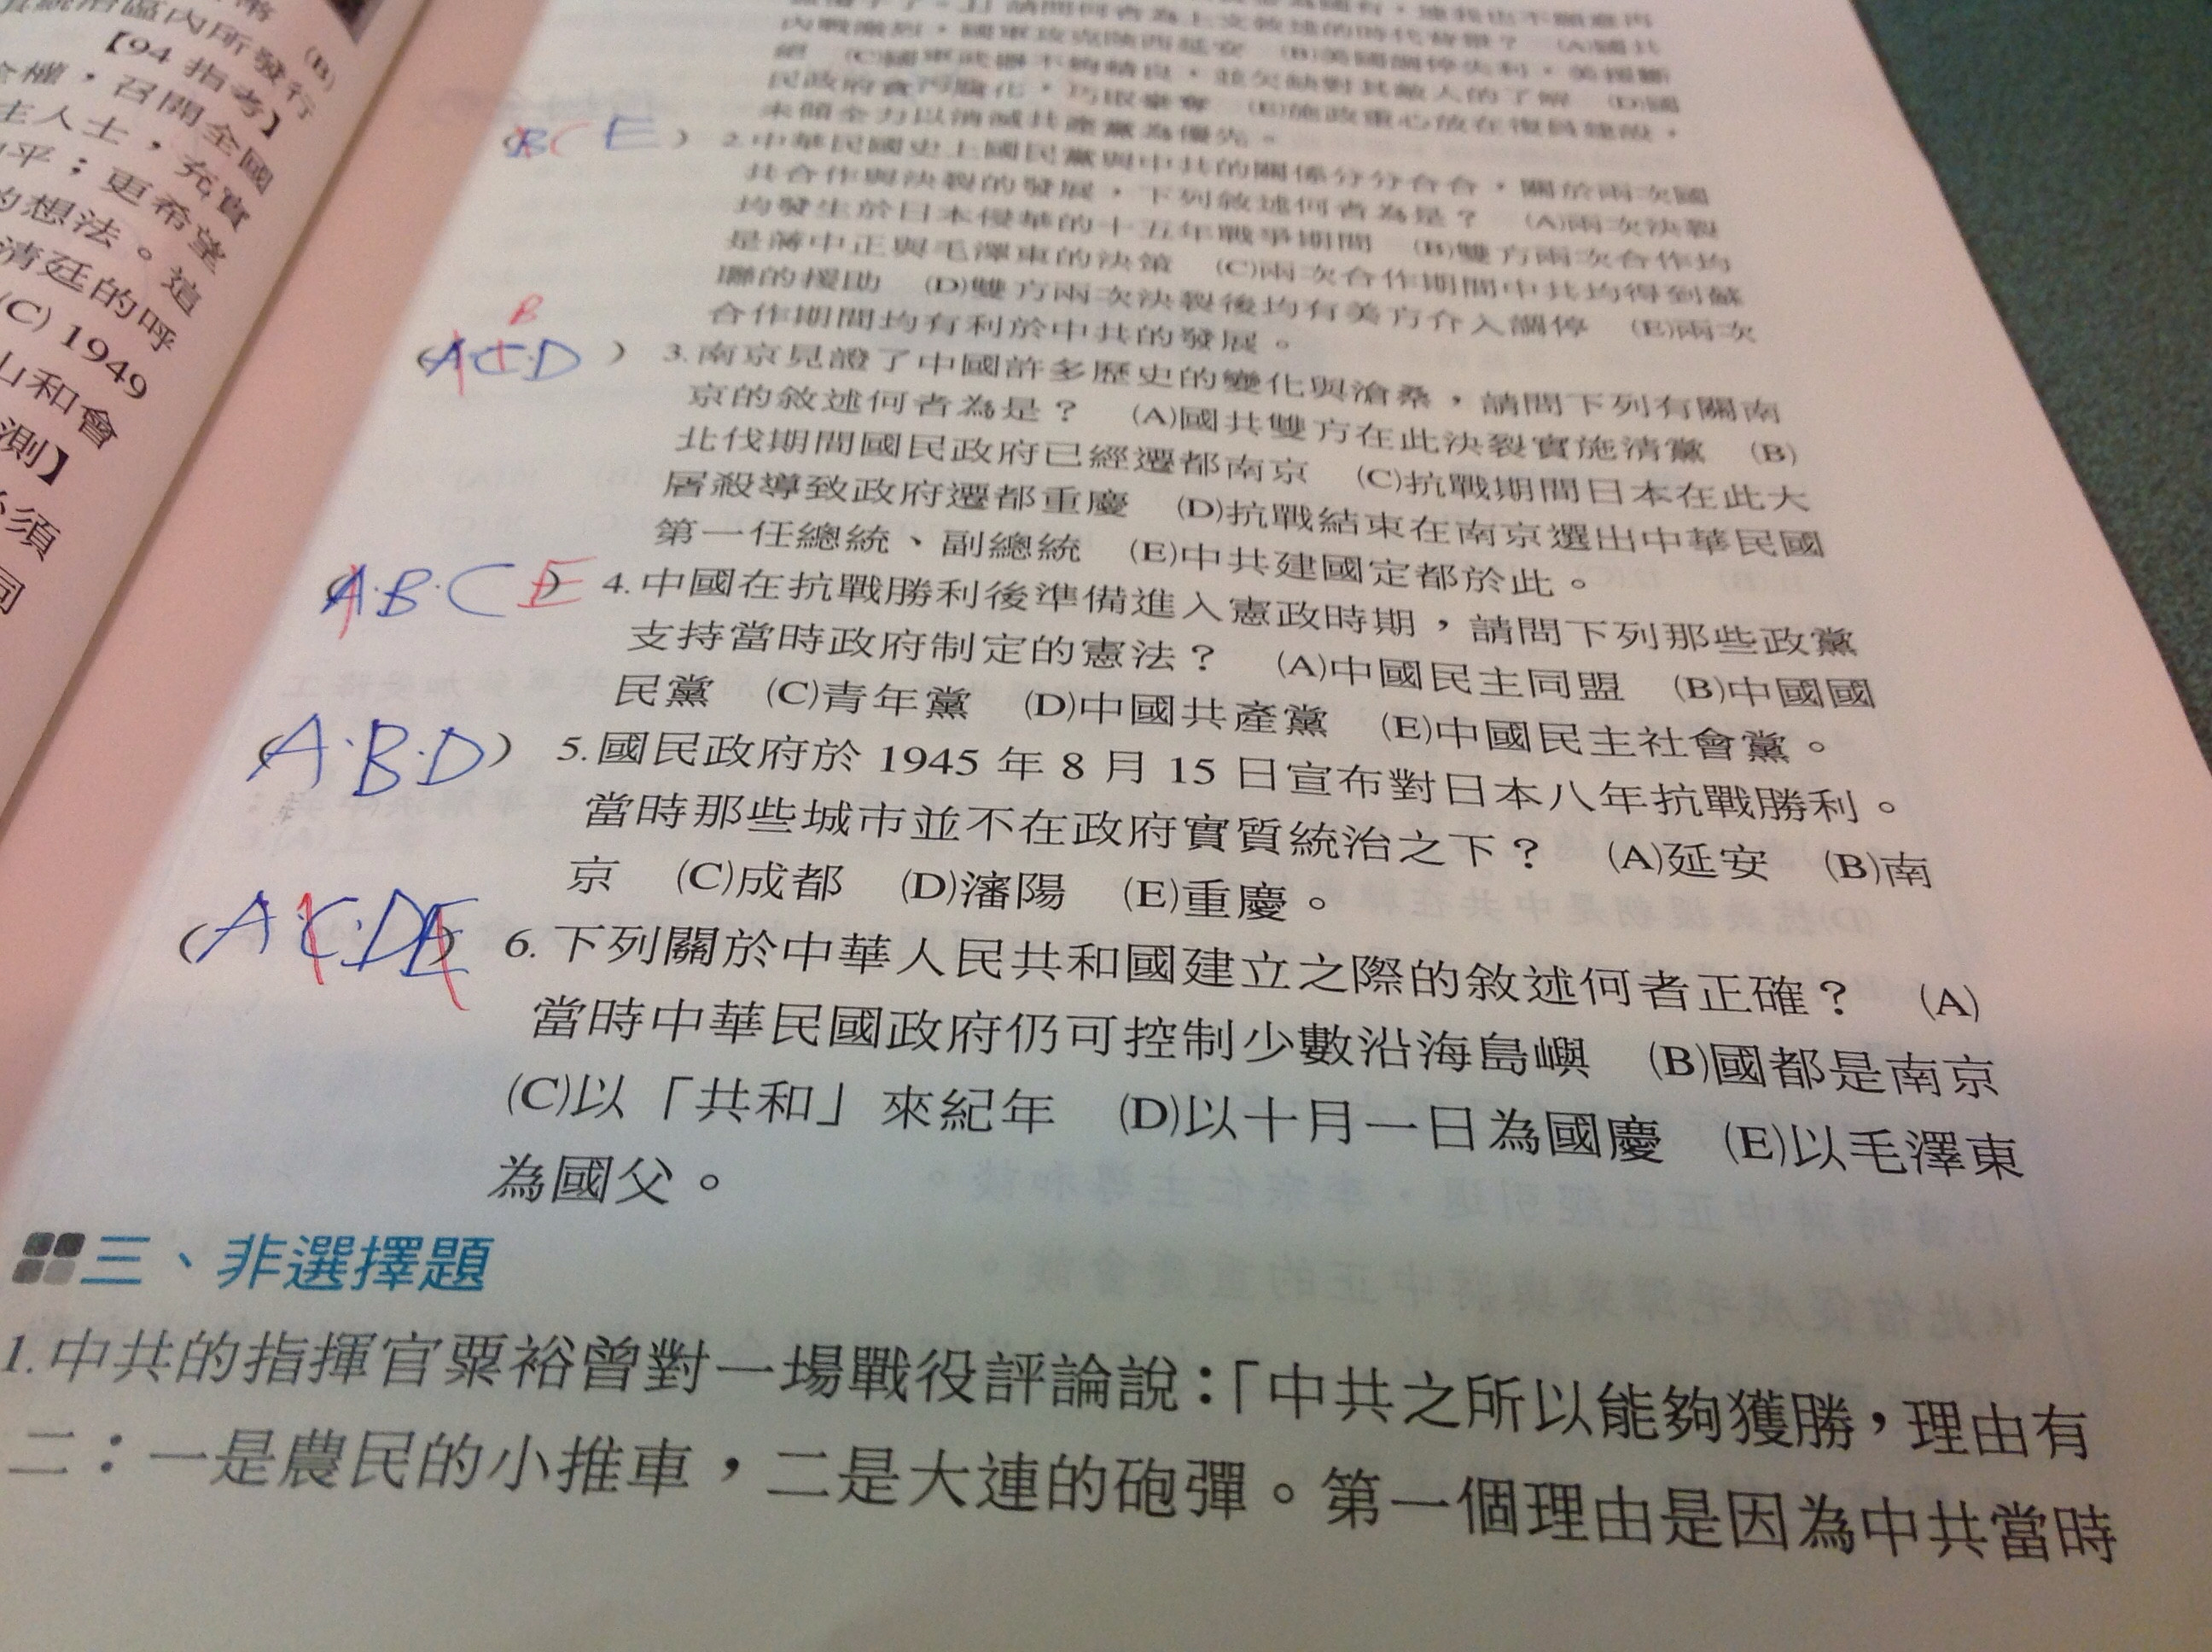 幣
區內所發行
【94 指考】
全權，召開全國
主人士，充實
和平；更希望
的想法。這
清廷的呼
(C) 1949
山和會
測】
必須
同
(B)
內戰激烈，國軍攻克陝西延安 (B)美國調停失利，美援斷
絕 (C)國軍武器不夠精良，並欠缺對其敵人的了解 (D)國
民政府貪污腐化，巧取豪奪 (E)施政重心放在復員建設，
未傾全力以消滅共產黨為優先。
(BCE) 2.中華民國史上國民黨與中共的關係分分合合，關於兩次國
共合作與決裂的發展，下列敘述何者為是？ (A)兩次決裂
均發生於日本侵華的十五年戰爭期間 (B)雙方兩次合作均
是蔣中正與毛澤東的決策 (C)兩次合作期間中共均得到蘇
聯的援助 (D)雙方兩次決裂後均有美方介入調停 (E)兩次
合作期間均有利於中共的發展。
B
(AC·D) 3.南京見證了中國許多歷史的變化與滄桑，請問下列有關南
京的敘述何者為是？ (A)國共雙方在此決裂實施清黨 (B)
北伐期間國民政府已經遷都南京 (C)抗戰期間日本在此大
屠殺導致政府遷都重慶 (D)抗戰結束在南京選出中華民國
第一任總統、副總統 (E)中共建國定都於此。
(A·B·C E) 4.中國在抗戰勝利後準備進入憲政時期，請問下列那些政黨
支持當時政府制定的憲法？ (A)中國民主同盟 (B)中國國
民黨 (C)青年黨 (D)中國共產黨 (E)中國民主社會黨。
(A·B·D) 5.國民政府於 1945 年 8 月 15 日宣布對日本八年抗戰勝利。
當時那些城市並不在政府實質統治之下？ (A)延安 (B)南
京 (C)成都 (D)瀋陽 (E)重慶。
(A·C·DE) 6.下列關於中華人民共和國建立之際的敘述何者正確？ (A)
當時中華民國政府仍可控制少數沿海島嶼 (B)國都是南京
(C)以「共和」來紀年 (D)以十月一日為國慶 (E)以毛澤東
為國父。
三、非選擇題
1.中共的指揮官粟裕曾對一場戰役評論說：「中共之所以能夠獲勝，理由有
二：一是農民的小推車，二是大連的砲彈。第一個理由是因為中共當時